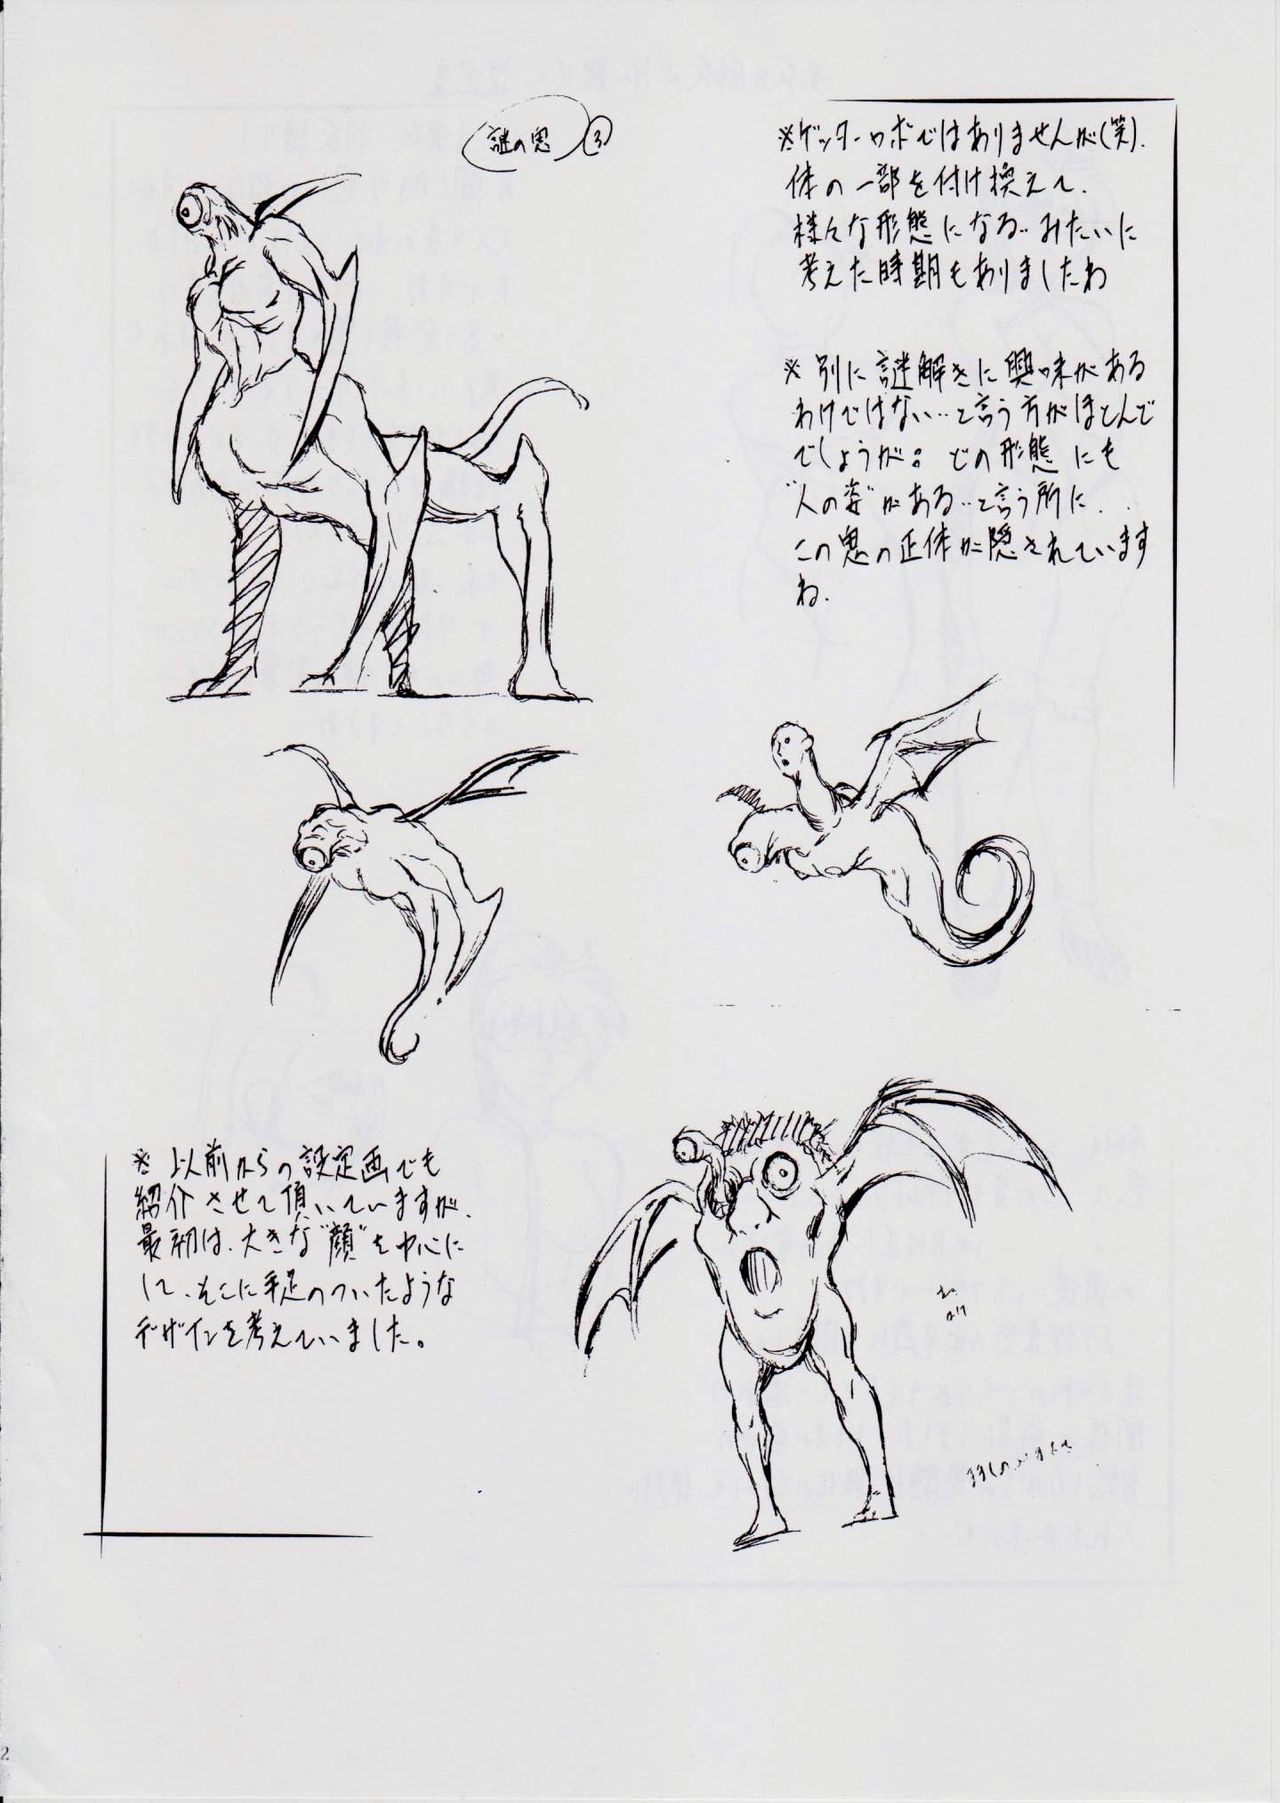 謎の鬼 ③
※ゲッターロボではありませんが(笑).
体の一部を付け換えて.
様々な形態になる‥みたいに
考えた時期もありましたね
※別に謎解きに興味がある
わけではない‥と言う方がほとんで
でしょうが。どの形態にも
"人の姿"がある‥と言う所に‥
この鬼の正体が隠されています
ね.
※以前からの設定画でも
紹介させて頂いていますが.
最初は、大きな"顔"を中心に
して、そこに手足のついたような
デザインを考えていました。
2